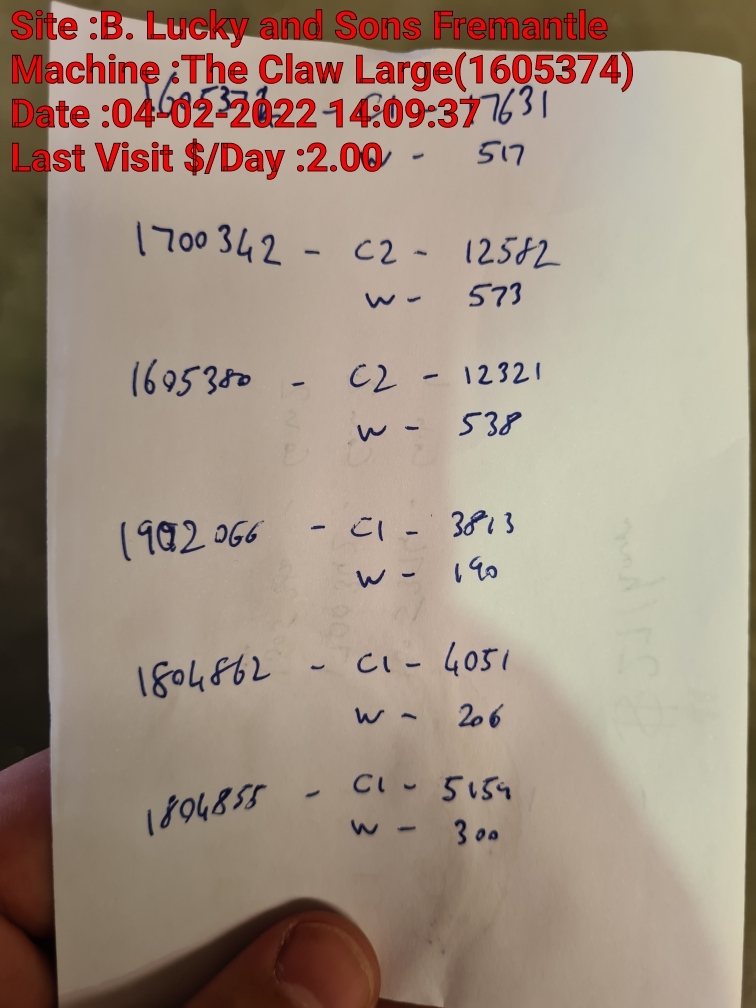 Site :B. Lucky and Sons Fremantle
Machine :The Claw Large(1605374)
Date :04-02-2022 14:09:37
Last Visit $/Day :2.00
17631
W - 517
1700342 - C2 - 12582
W - 573
1605380 - C2 - 12321
W - 538
1902066 - C1 - 3813
W - 190
1804862 - C1 - 4051
W - 206
1804855 - C1 - 5159
W - 300